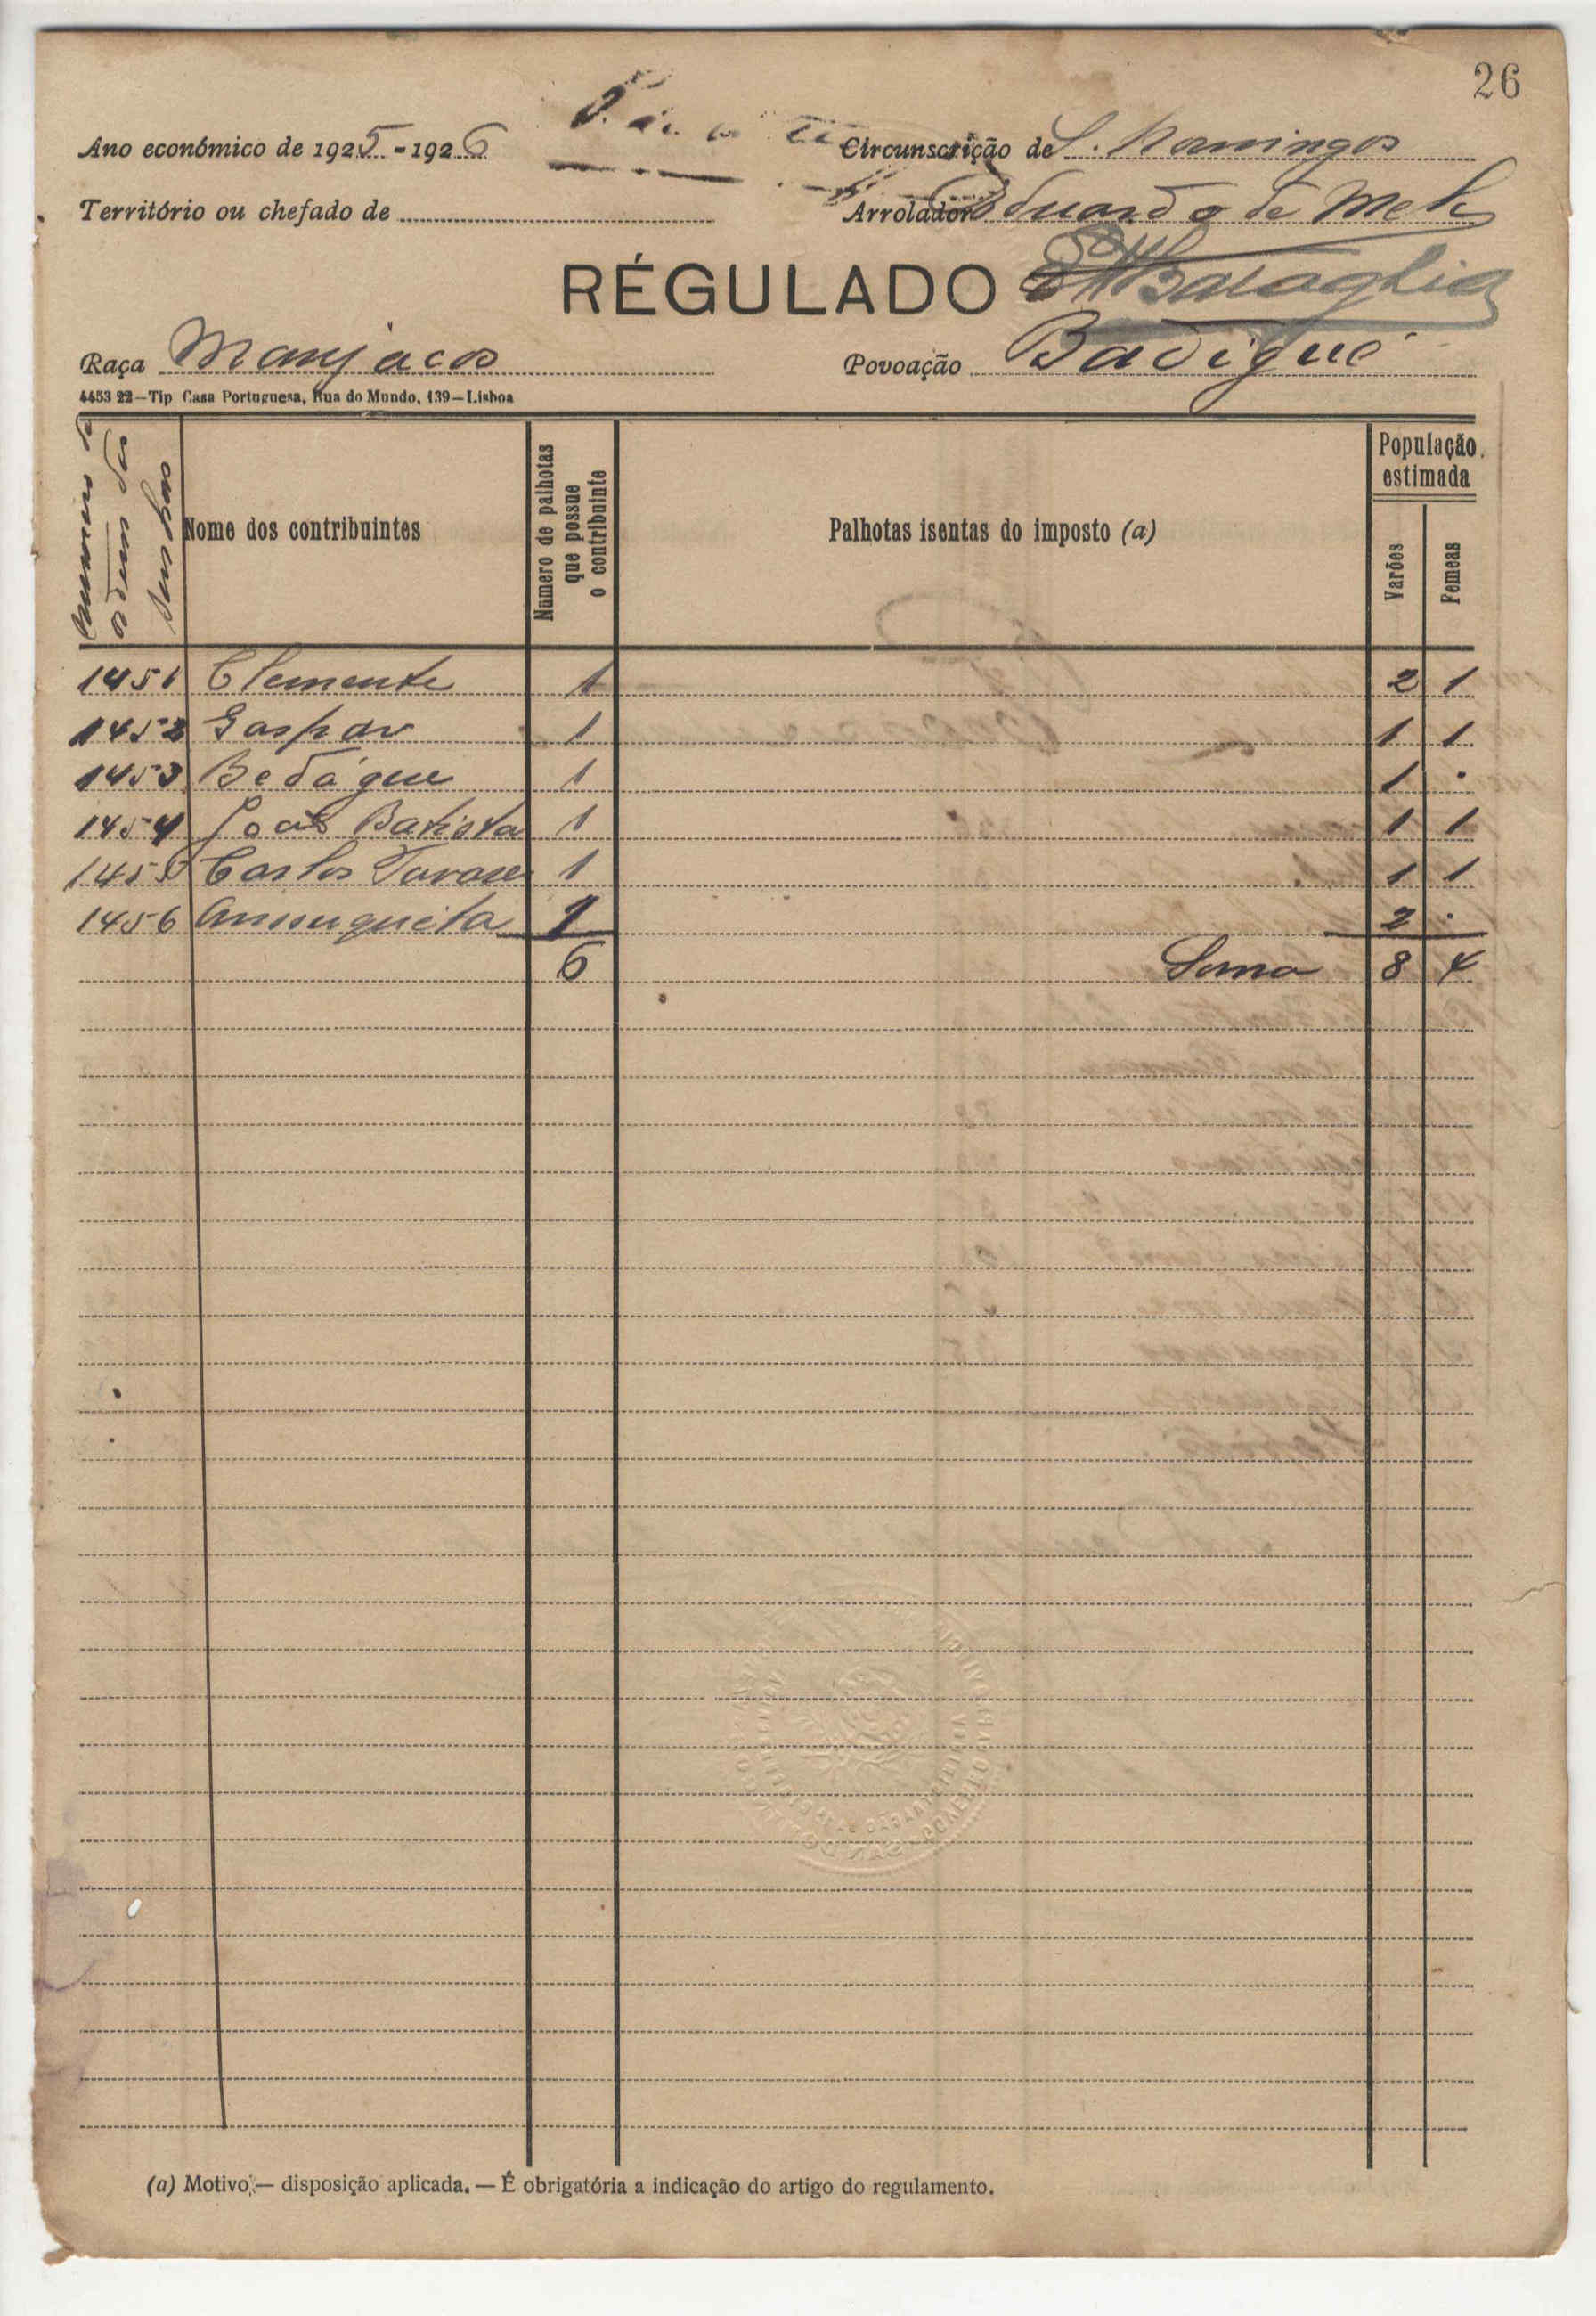 26
Ano económico de 1925-1926 Circunscrição de S. Domingos
Território ou chefado de Arrolador Eduardo de Melo
RÉGULADO
Raça Manjacos Povoação Badigué
4453 22—Tip Casa Portuguesa, Rua do Mundo, 139—Lisboa
Nome dos contribuintes Número de palhotas que possue o contribuinte Palhotas isentas do imposto (a) População estimada Varões Femeas
1451 Clemente 1 2 1
1452 Gaspar 1 1 1
1453 Bedágue 1 1 .
1454 João Batista 1 1 1
1455 Carlos Tavares 1 1 1
1456 1 2 .
6 Soma 8 4
(a) Motivo;— disposição aplicada. — É obrigatória a indicação do artigo do regulamento.